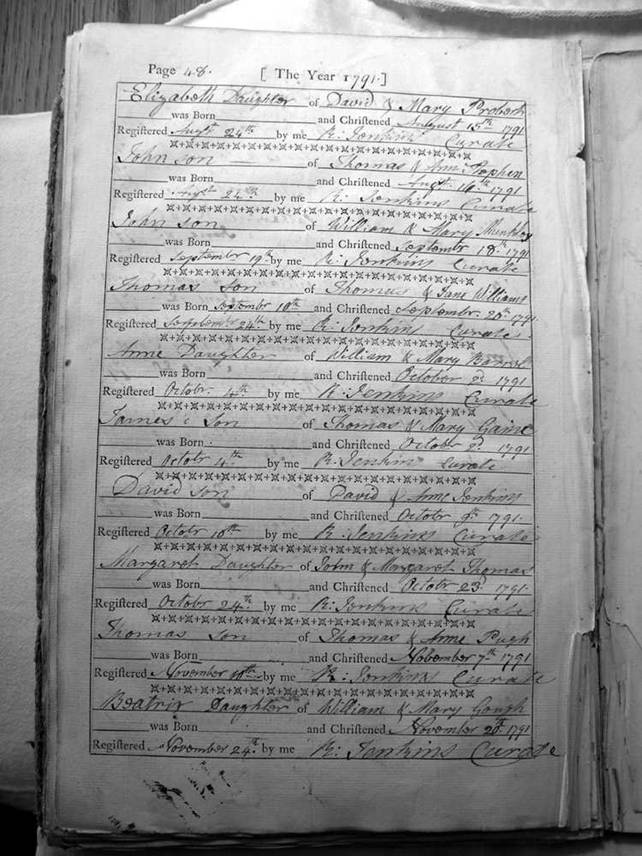 Page 48. [ The Year 1791. ]
Elizabeth Daughter of David & Mary Probert
was Born and Christened August 15th 1791
Registered Augt 24th by me R: Jenkins Curate
John son of Thomas & Ann
was Born and Christened Augt 1791
Registered Augt 24th by me R: Jenkins Curate
John son of William & Mary
was Born and Christened Septembr 18th 1791
Registered September 19th by me R: Jenkins Curate
Thomas Son of Thomas & Jane Williams
was Born September 10th and Christened Septembr 20th 1791
Registered September 24th by me R: Jenkins Curate
Anne Daughter of William & Mary
was Born and Christened October 2d 1791
Registered Octobr 4th by me R: Jenkins Curate
James Son of Thomas & Mary Game
was Born and Christened Octobr 2d 1791
Registered Octobr 4th by me R: Jenkins Curate
David son of David & Anne Jenkins
was Born and Christened Octobr 9th 1791
Registered Octobr 10th by me R: Jenkins Curate
Margaret Daughter of John & Margaret Thomas
was Born and Christened Octobr 23d 1791
Registered Octobr 24th by me R: Jenkins Curate
Thomas Son of Thomas & Anne Pugh
was Born and Christened November 7th 1791
Registered November by me R: Jenkins Curate
Beatrix Daughter of William & Mary Gough
was Born and Christened November 20th 1791
Registered November 24th by me R: Jenkins Curate